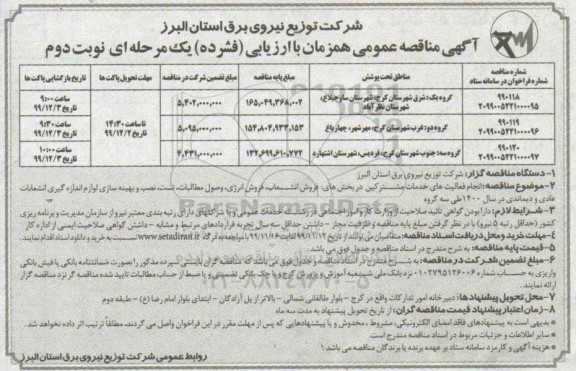 شرکت توزیع نیروی برق استان البرز
آگهی مناقصه عمومی همزمان با ارزیابی (فشرده) یک مرحله ای نوبت دوم
شماره مناقصه
شماره فراخوان در سامانه ستاد
مناطق تحت پوشش
مبلغ پایه مناقصه
مبلغ تضمین شرکت در مناقصه
مهلت تحویل پاکت ها
تاریخ بازگشایی پاکت ها
۹۹۰۱۱۸
۲۰۹۹۰۰۵۲۲۱۰۰۰۰۹۵
گروه یک: شرق شهرستان کرج، شهرستان ساوجبلاغ، شهرستان نظرآباد
۱۶۵,۰۴۹,۳۶۸,۰۰۲
۵,۴۰۲,۰۰۰,۰۰۰
تا ساعت ۱۴:۳۰
تاریخ ۹۹/۱۲/۲
ساعت ۹:۰۰
تاریخ ۹۹/۱۲/۳
۹۹۰۱۱۹
۲۰۹۹۰۰۵۲۲۱۰۰۰۰۹۶
گروه دو: غرب شهرستان کرج، مهرشهر، چهارباغ
۱۵۴,۸۰۴,۹۳۳,۱۵۳
۵,۰۹۵,۰۰۰,۰۰۰
ساعت ۹:۳۰
تاریخ ۹۹/۱۲/۳
۹۹۰۱۲۰
۲۰۹۹۰۰۵۲۲۱۰۰۰۰۹۷
گروه سه: جنوب شهرستان کرج، فردیس، شهرستان اشتهارد
۱۳۲,۶۹۹,۶۱۰,۷۷۲
۴,۴۳۱,۰۰۰,۰۰۰
ساعت ۱۰:۰۰
تاریخ ۹۹/۱۲/۳
۱- دستگاه مناقصه گزار: شرکت توزیع نیروی برق استان البرز
۲- موضوع مناقصه: انجام فعالیت های خدمات مشترکین در بخش های: فروش انشعاب، فروش انرژی، وصول مطالبات، تست، نصب و بهینه سازی لوازم اندازه گیری انشعابات
عادی و دیماندی در سال ۱۴۰۰ طی سه گروه
۳- شرایط لازم: دارا بودن گواهی تائید صلاحیت از وزارت کار و امور اجتماعی در رشته خدمات عمومی و یا شرکتهای دارای رتبه بندی معتبر نیرو از سازمان مدیریت و برنامه ریزی
کشور (حداقل رتبه ۵ نیرو) با در نظر گرفتن مبلغ پایه مناقصه و ظرفیت مجاز - داشتن حداقل سه سال تجربه قراردادهای مرتبط و مشابه - داشتن گواهی صلاحیت ایمنی از اداره کار
۴- مهلت خرید و دریافت اسناد مناقصه: www.setadiran.ir نسبت به خرید و دانلود اسناد اقدام نمایند.
۵- قیمت پایه مناقصه: به شرح مندرج در اسناد مناقصه و جدول فوق می باشد.
۶- مبلغ تضمین شرکت در مناقصه:
واریزی به حساب شماره ۰۱۰۲۷۹۵۱۲۶۰۰۶ نزد بانک ملی شعبه آموزش و پرورش کرج و یا چک بانکی تضمینی و یا ضبط از حساب مطالبات تایید شده مناقصه گر نزد مناقصه گزار
ارائه نمایند.
۷- محل تحویل پیشنهاد ها: دبیرخانه امور تدارکات واقع در کرج - بلوار طالقانی شمالی - بالاتر از پل آزادگان - ابتدای بلوار امام رضا (ع) - طبقه دوم
۸- زمان اعتبار پیشنهاد قیمت مناقصه گران: از تاریخ تحویل پیشنهاد به مدت سه ماه
* بدیهی است به پیشنهادهای فاقد امضای الکترونیکی، مشروط، مخدوش و یا پیشنهادهایی که پس از مهلت مقرر در این فراخوان واصل می گردند، مطلقاً ترتیب اثر داده نخواهد شد.
* سایر اطلاعات و جزئیات مربوط در اسناد مناقصه مندرج است.
* هزینه آگهی و کارمزد سامانه ستاد بر عهده برنده یا برندگان مناقصه می باشد.
روابط عمومی شرکت توزیع نیروی برق استان البرز
ParsNamadData